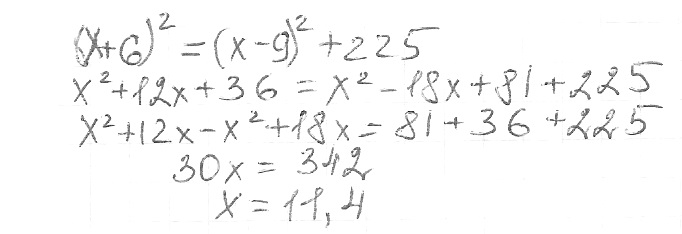 (x+6)² = (x-9)² + 225
x² + 12x + 36 = x² - 18x + 81 + 225
x² + 12x - x² + 18x = 81 + 36 + 225
30x = 342
x = 11,4